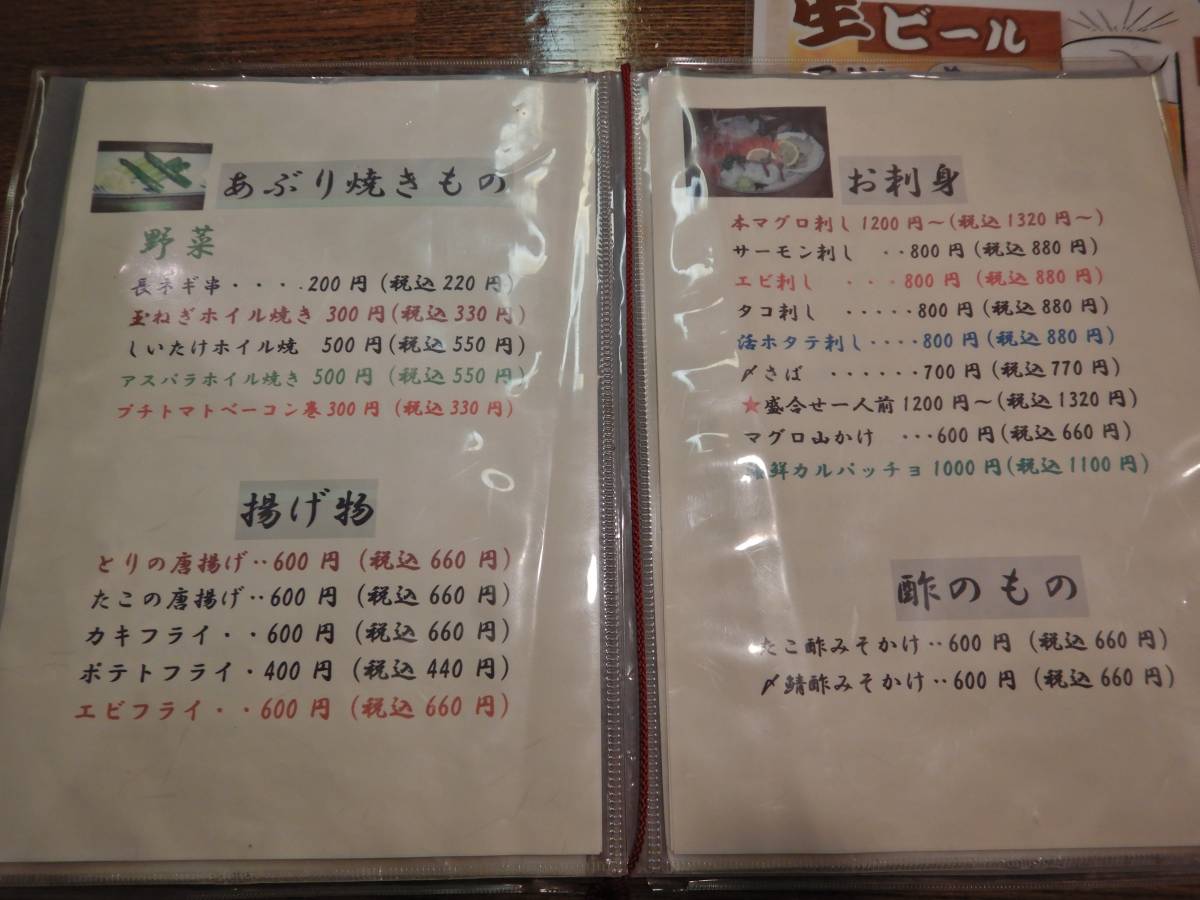 生ビール
あぶり焼きもの
野菜
長ネギ串・・・・200円(税込220円)
玉ねぎホイル焼き 300円(税込330円)
しいたけホイル焼 500円(税込550円)
アスパラホイル焼き 500円(税込550円)
プチトマトベーコン巻300円(税込330円)
揚げ物
とりの唐揚げ‥600円(税込660円)
たこの唐揚げ‥600円(税込660円)
カキフライ・・600円(税込660円)
ポテトフライ・400円(税込440円)
エビフライ・・600円(税込660円)
お刺身
本マグロ刺し1200円～(税込1320円～)
サーモン刺し ・・800円(税込880円)
エビ刺し ・・・800円(税込880円)
タコ刺し ・・・・・800円(税込880円)
活ホタテ刺し・・・・800円(税込880円)
〆さば ・・・・・・700円(税込770円)
★盛合せ一人前1200円～(税込1320円)
マグロ山かけ ・・・600円(税込660円)
海鮮カルパッチョ1000円(税込1100円)
酢のもの
たこ酢みそかけ‥600円(税込660円)
〆鯖酢みそかけ‥600円(税込660円)